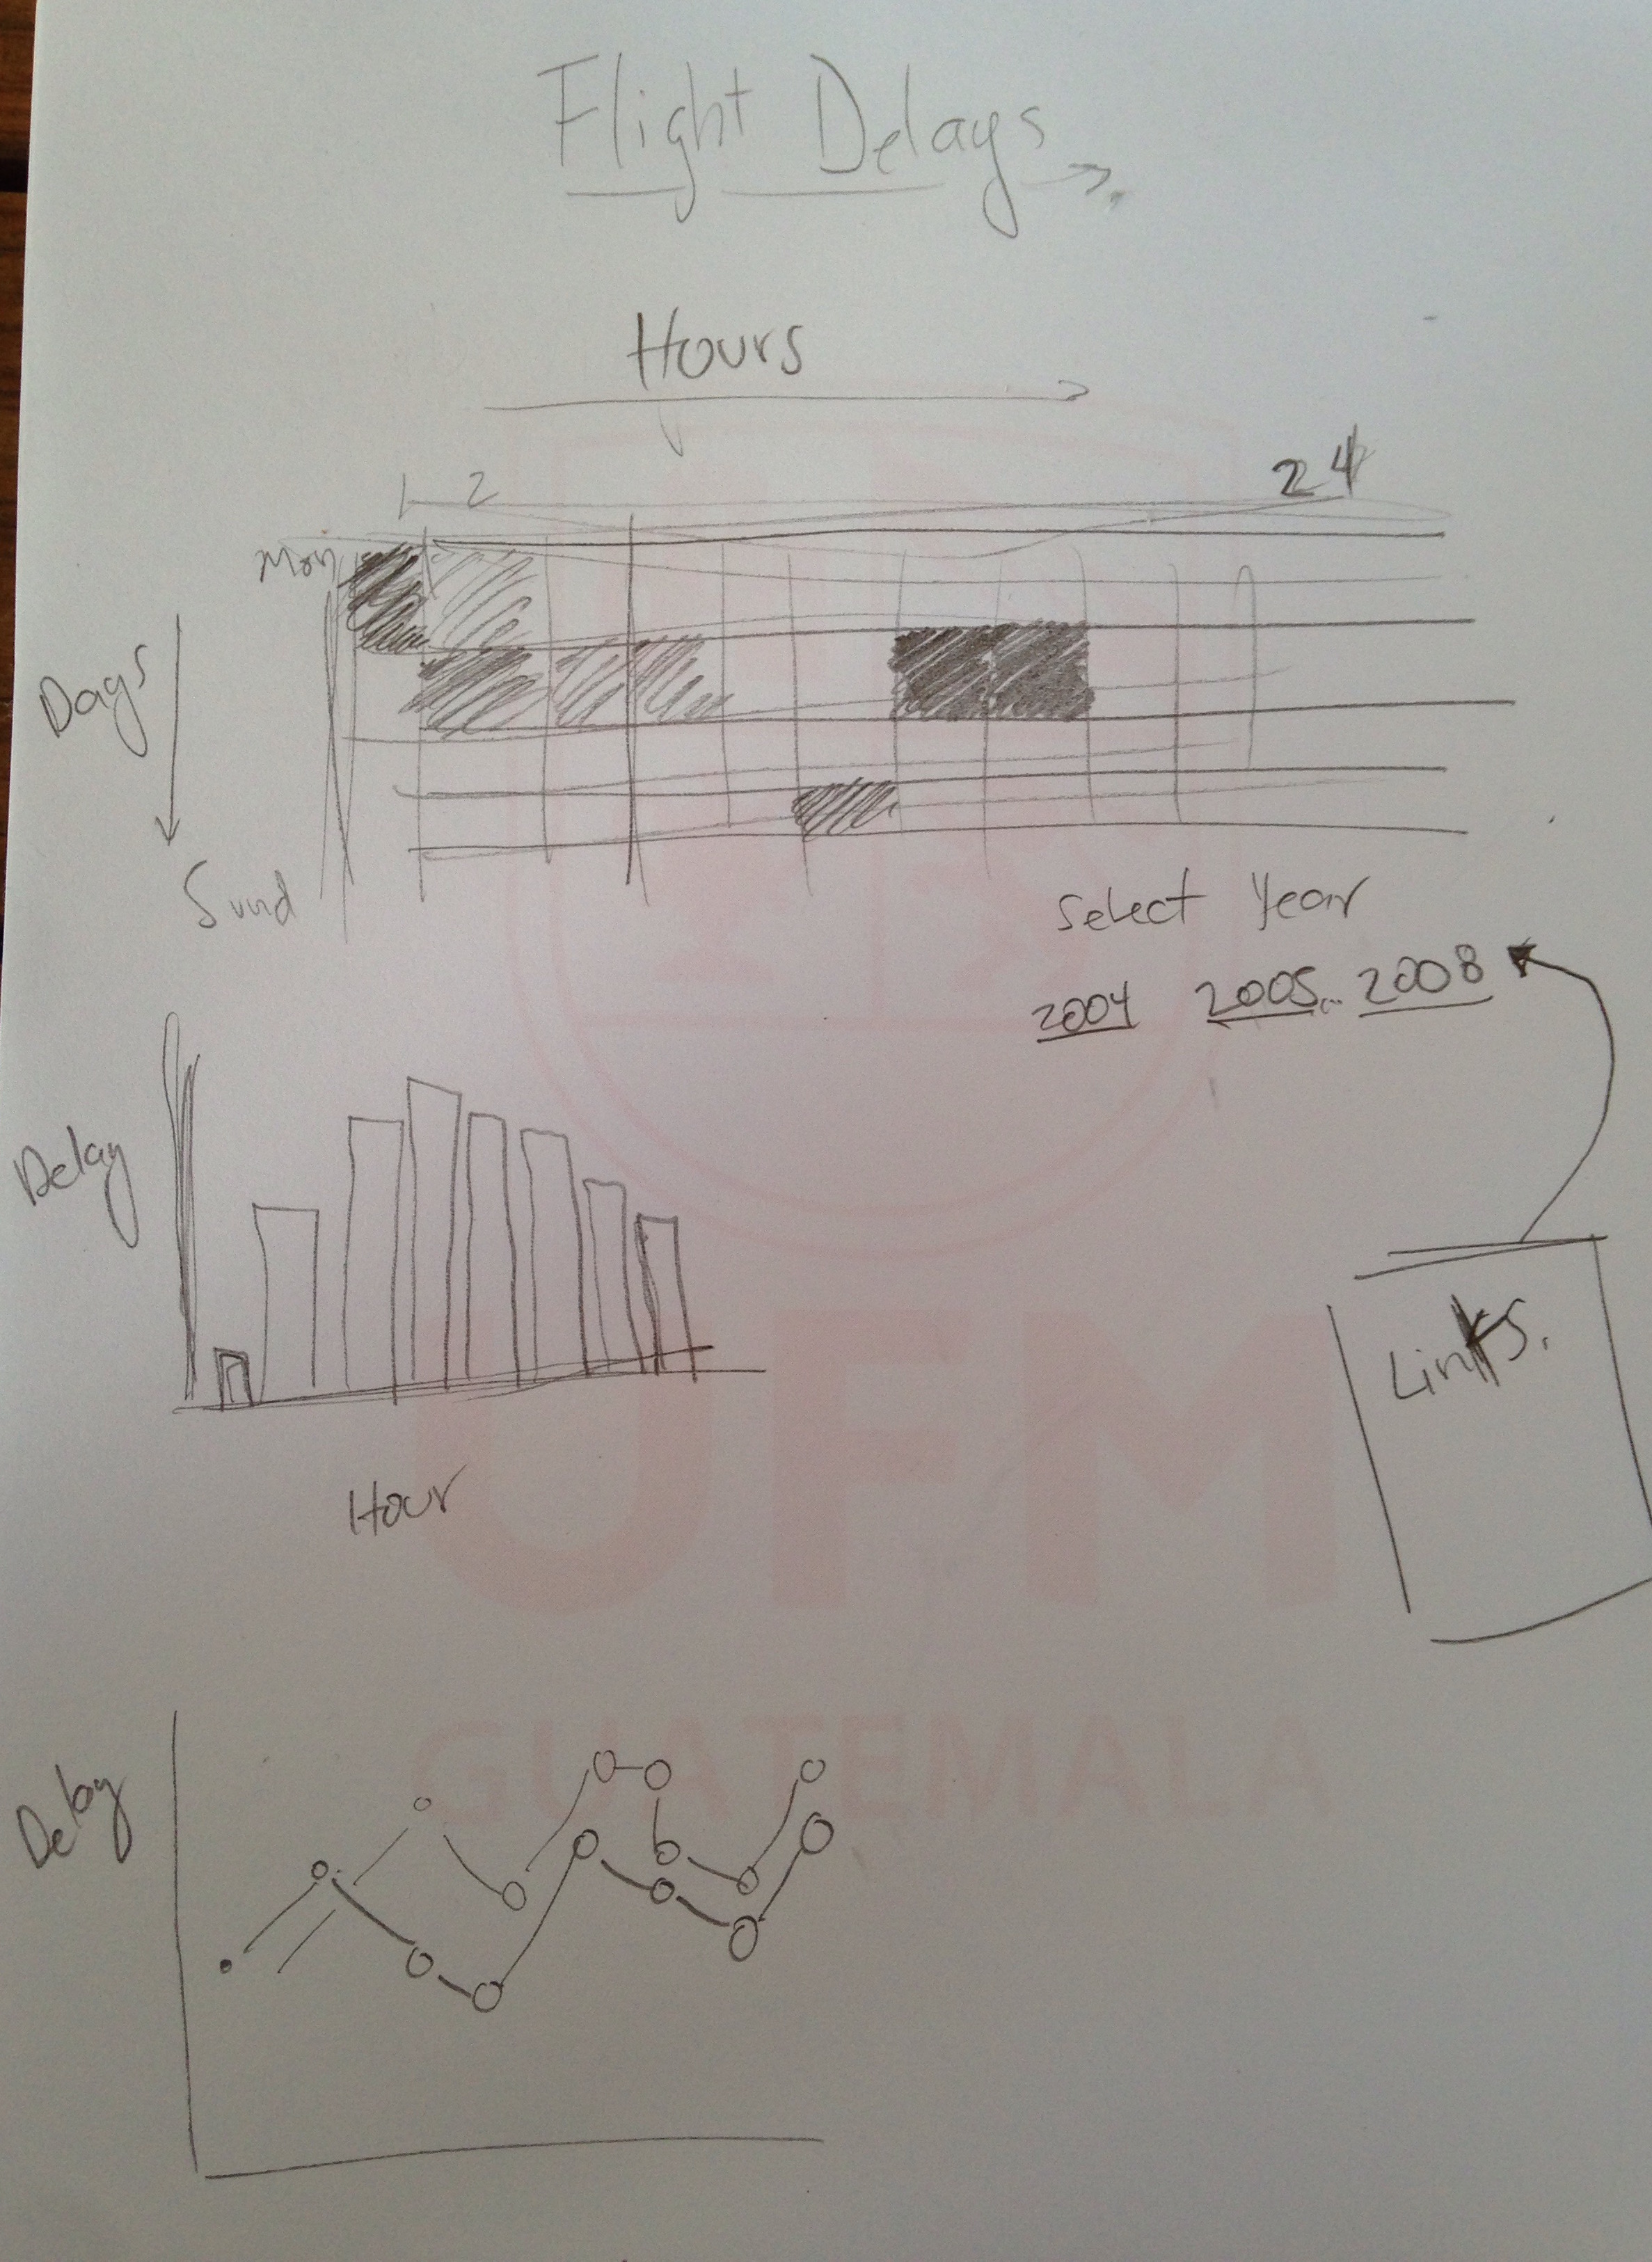 Flight Delays
Hours
1 2 24
Mon
Days
Sund
Select Year
2004 2005... 2008
Delay
Links.
Hour
UFM
GUATEMALA
Delay